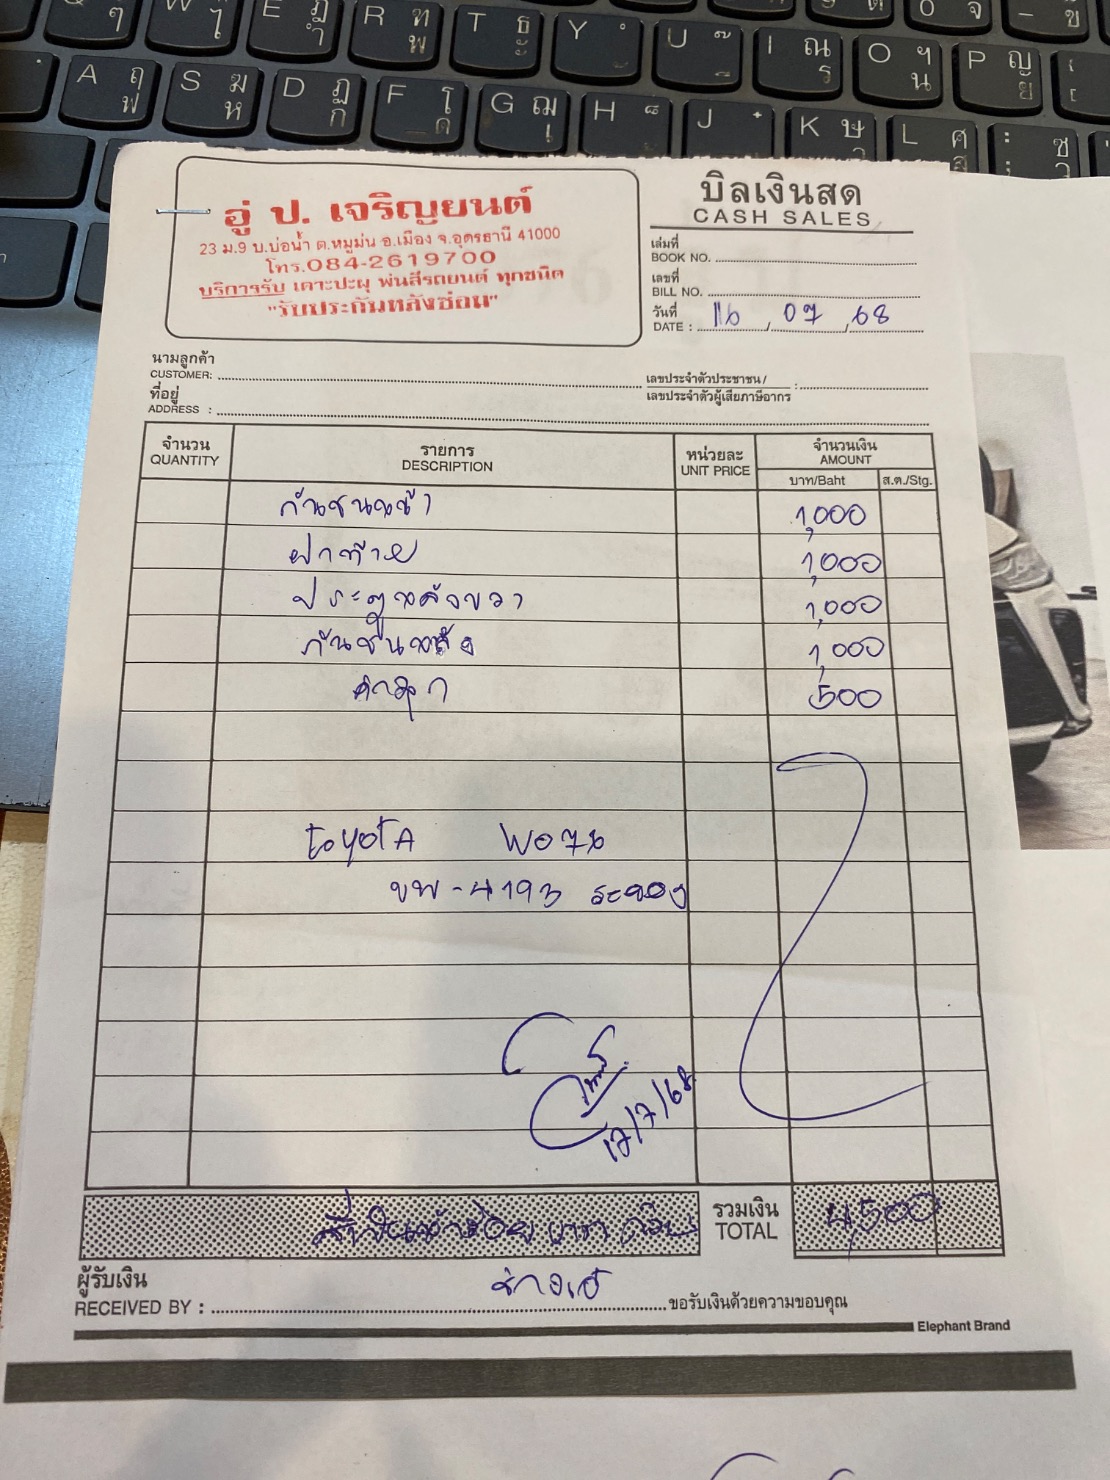 Q ๆ W ไ E ฎ ำ R ฑ พ T ธ ะ Y U I ณ ร O ฯ น P ญ ย
A ฤ ฟ S ฆ ห D ฏ ก F โ ด G ฌ เ H J K ษ L ศ ส : ซ ว
อู่ ป. เจริญยนต์
23 ม.9 บ.บ่อน้ำ ต.หมูม่น อ.เมือง จ.อุดรธานี 41000
โทร.084-2619700
บริการรับ เคาะปะผุ พ่นสีรถยนต์ ทุกชนิด
"รับประกันหลังซ่อม"
บิลเงินสด
CASH SALES
เล่มที่
BOOK NO.
เลขที่
BILL NO.
วันที่
DATE : 16 / 07 / 68
นามลูกค้า
CUSTOMER:
เลขประจำตัวประชาชน /
เลขประจำตัวผู้เสียภาษีอากร :
ที่อยู่
ADDRESS :
จำนวน รายการ หน่วยละ จำนวนเงิน
QUANTITY DESCRIPTION UNIT PRICE AMOUNT
บาท/Baht ส.ต./Stg.
กันชนหน้า 1,000
ฝาท้าย 1,000
ประตูหลังขวา 1,000
กันชนหลัง 1,000
500
toyotA
ขพ-4193 ระยอง
17/7/68
สี่พันห้าร้อยบาทถ้วน รวมเงิน 4,500
TOTAL
ผู้รับเงิน
RECEIVED BY : ขอรับเงินด้วยความขอบคุณ
Elephant Brand